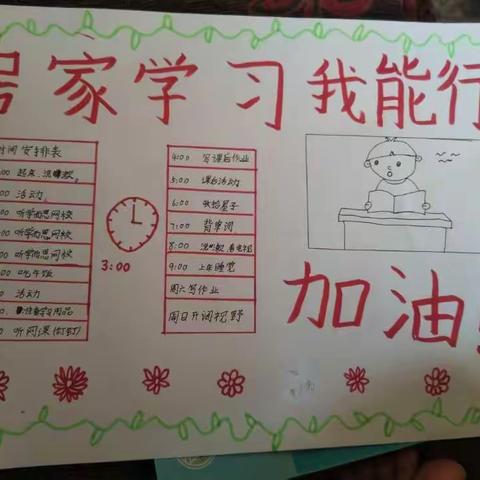 居家学习我能行
时间安排表
00 起床、洗漱
00 活动
00 听学而思网校
00 听学而思网校
00 听学而思网校
00 吃午饭
00 活动
学习用品
00 听网课(钉钉)
3:00
4:00 写课后作业
5:00 课后活动
6:00 收拾屋子
7:00 背单词
8:00 洗漱 看电视
9:00 上床睡觉
周六写作业
周日开阔视野
加油!